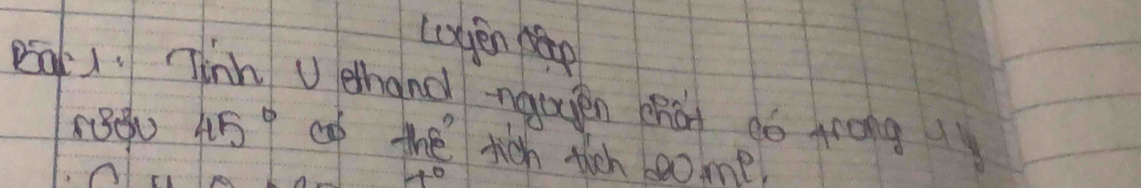 Luyện tập
Bài 1: Tính V ethanol nguyên chất có trong
rượu 45° có thể tích tích ml.